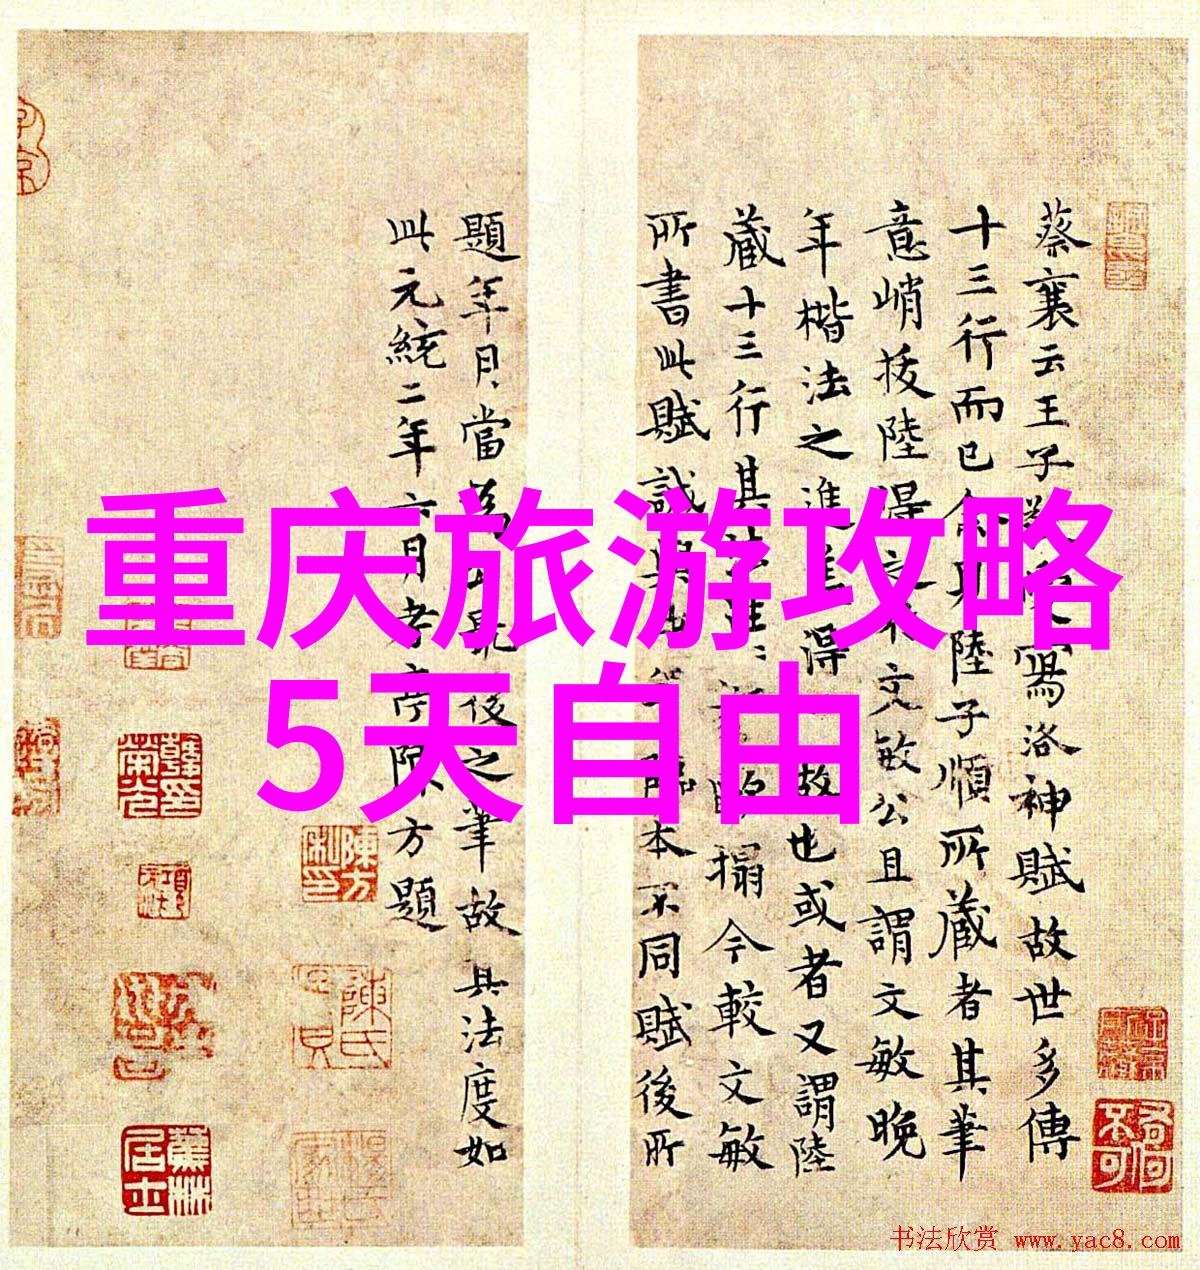 重庆旅游攻略
5天自由
蔡襄云王子敬 寫洛神賦故世多傳
十三行而已 陸子順所藏者其筆
意峭拔陸得之 文敏公且謂文敏晚
年楷法之進 得 故也或者又謂陸
藏十三行其 搨今較文敏
所書此賦誠 臨本不同賦後所
題年月當為 後之筆故其法度如
此元統二年六月孝 陳方題
陳方
陳氏
蕉林
居士
书法欣赏 www.yac8.com